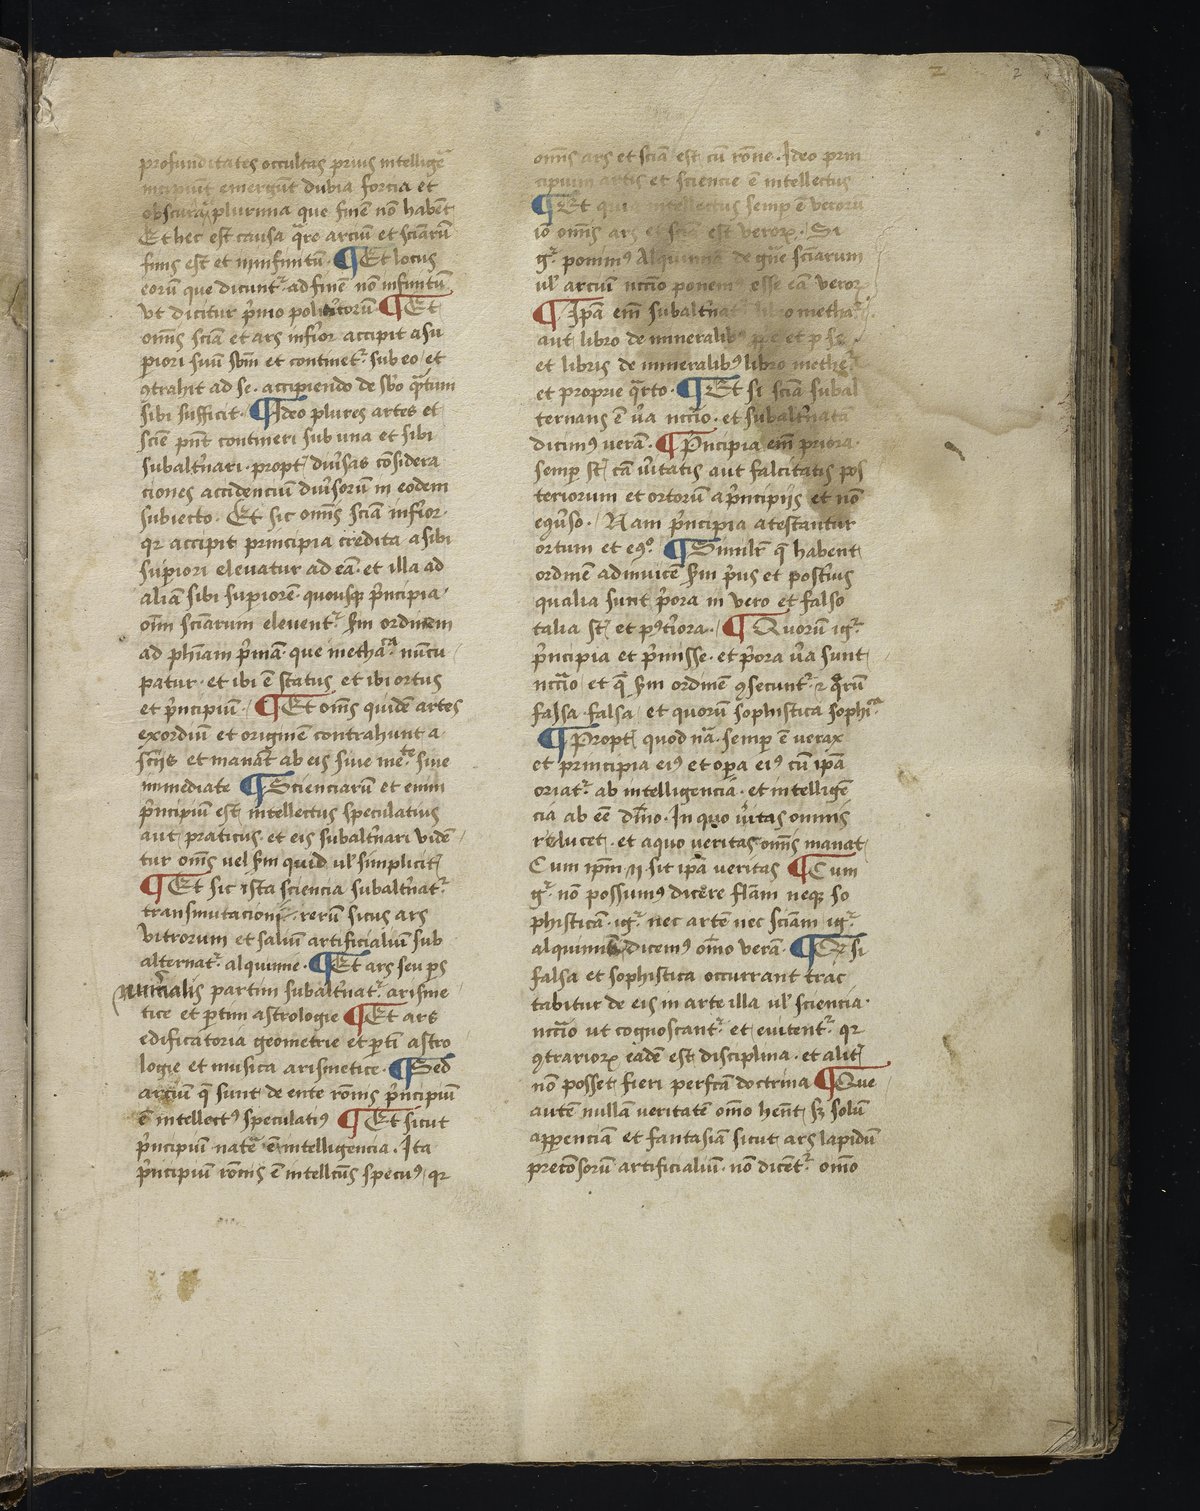 2 2
profunditates occultas prius intelligē
incipiūt emergūt dubia forcia et
obscura plurima que finē nō habēt
Et hec est causa q̄re arciū et sciārū
finis est et in infinitū ¶ Et locus
eorū que dicunt᷑ ad finē nō infinitū
Vt dicitur p̄mo politicorū ¶ Et
om̄s sciā et ars inferior accipit a su
periori suū sb̄m et continet᷑ sub eo et
ꝯtrahit ad se accipiendo de sb̄o q̄ntum
sibi sufficit ¶ Ideo plures artes et
sciē pn̄t contineri sub una et sibi
subalt̄nari propt̄ diūsas cōsidera
ciones accidenciū diūsorū in eodem
subiecto Et sic om̄s sciā inferior
qr accipit principia credita a sibi
supiori eleuatur ad eā et illa ad
aliā sibi supiorē quousqꝫ p̄ncipia
oīm sciārum eleuent᷑ sm̄ ordinem
ad ph̄iam p̄mā que metha.ca nūcu
patur et ibi ē status et ibi ortus
et p̄ncipiū ¶ Et om̄s quidē artes
exordiū et originē contrahunt a
scijs et manāt ab eis siue me.te siue
immediate ¶ Scienciarū et enim
p̄ncipiū est intellectus speculatius
aut praticus et eis subalt̄nari vidē
tur om̄s uel sm̄ quid ul̕ simplicit̄
¶ Et sic ista sciencia subalt̄nat᷑
transmutacioni rerū sicut ars
vitrorum et saliū artificialiū sub
alternat᷑ alquimie ¶ Et ars seu ps
numeralis partim subalt̄nat᷑ arisme
tice et ptim astrologie ¶ Et ars
edificatoria geometrie et ptī astro
logie et musica arismetice ¶ Sed
arcium q̄ sunt de ente rōnis p̄ncipiū
ē intellectꝰ speculatiꝰ ¶ Et sicut
p̄ncipiū natē ē intelligencia Ita
p̄ncipiū rōnis ē intellcūs specuꝰ qr
om̄s ars et sciā est cū rōne Ideo prin
cipium artis et sciencie ē intellectus
¶ Et quia intellectus semp ē verorū
iō om̄s ars et sciā est veroꝝ Si
g᷑ ponimꝰ Alquimiā de gn̄e sciārum
ul̕ arciū nccīo ponemꝰ esse eā veroꝝ
¶ Ipā em̄ subalt̄nat᷑ libro metha
aut libro de mineralibꝰ ppe et p se
et libris de mineralibꝰ libro methe
et proprie q̄rto ¶ Et si sciā subal
ternans ē ūa nccīo et subalt̄natā
dicimꝰ verā ¶ P̄ncipia em̄ priora
semp st̄ cā ūitatis aut falcitatis pos
teriorum et ortorū a p̄ncipijs et nō
eꝯūso Nam p̄ncipia atestantur
ortum et eꝯo ¶ Similr̄ q̄ habent
ordinē adinuicē sm̄ p̄us et postius
qualia sunt p̄ora in vero et falso
talia st̄ et pꝰt̄iora ¶ Quorū ig᷑
p̄ncipia et p̄misse et p̄ora ūa sunt
nccīo et q̄ sm̄ ordinē ꝯsecunt᷑ ⁊ q̄rū
falsa falsa et quorū sophistica sophica
¶ Propt̄ quod nā semp ē verax
et principia eiꝰ et opa eiꝰ cū ipā
oriat᷑ ab intelligencia et intelligē
cia ab eē dīuo In quo ūitas omnis
relucet et a quo veritas om̄s manat
Cum ip̄m sit ipā veritas ¶ Cum
g᷑ nō possumꝰ dicere flām neqꝫ so
phisticā ig᷑ nec artē nec sciām ig᷑
alquimiā dicemꝰ om̄o verā ¶ Qꝫ si
falsa et sophistica occurrant trac
tabitur de eis in arte illa ul̕ sciencia
nccīo ut cognoscant᷑ et euitent᷑ qr
ꝯtrarioꝝ eadē est disciplina et alit̄
nō posset fieri perfcā doctrina ¶ Que
autē nullā veritatē om̄o hēnt sꝫ solū
apparenciā et fantasiā sicut ars lapidū
preciōsorū artificialiū nō dicēt᷑ om̄o